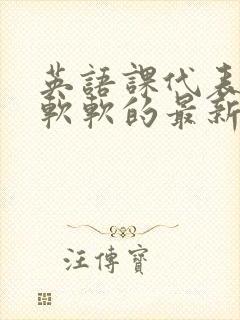 英語課代表
軟軟的最新
汪傳寶